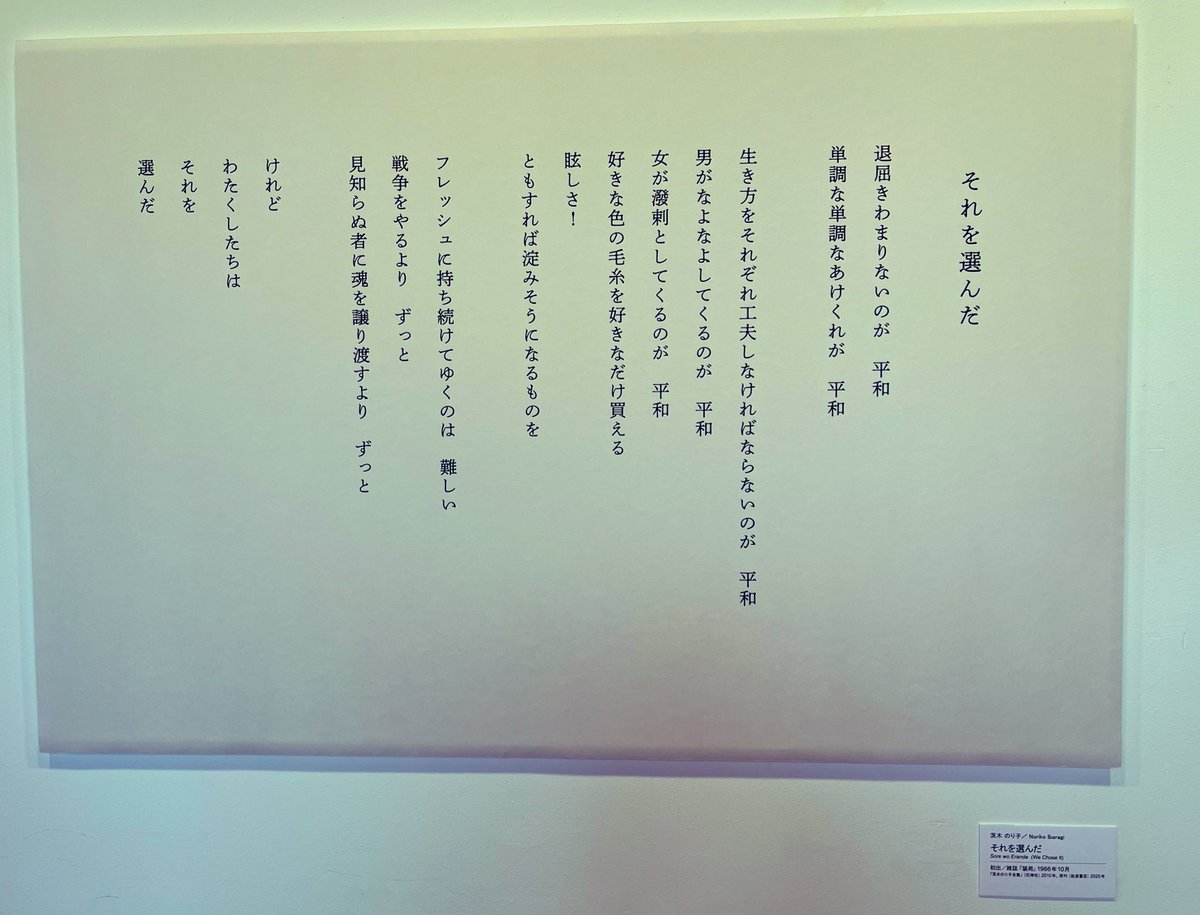 それを選んだ
退屈きわまりないのが　平和
単調な単調なあけくれが　平和
生き方をそれぞれ工夫しなければならないのが　平和
男がなよなよしてくるのが　平和
女が潑剌としてくるのが　平和
好きな色の毛糸を好きなだけ買える
眩しさ！
ともすれば淀みそうになるものを
フレッシュに持ち続けてゆくのは　難しい
戦争をやるより　ずっと
見知らぬ者に魂を譲り渡すより　ずっと
けれど
わたくしたちは
それを
選んだ
茨木 のり子／ Noriko Ibaragi
それを選んだ
Sore wo Eranda (We Chose It)
初出／雑誌「装苑」1966年10月
『茨木のり子全集』（花神社）2010年、再刊（岩波書店）2025年